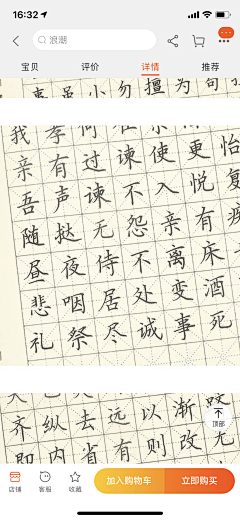 16:32
浪潮
宝贝 评价 详情 推荐
事虽小勿擅为苟
我孝何
亲有过谏使更怡
吾声谏不入悦复
随挞无怨亲有疾
昼夜侍不离床
悲咽居处变酒
礼祭尽诚事死
齐纵去远以渐跂
即内省有则改无
顶部
店铺 客服 收藏
加入购物车 立即购买